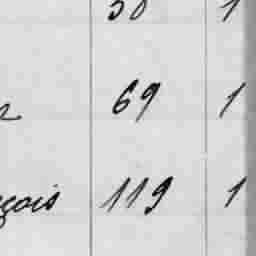 58 1
69 1
çois 119 1